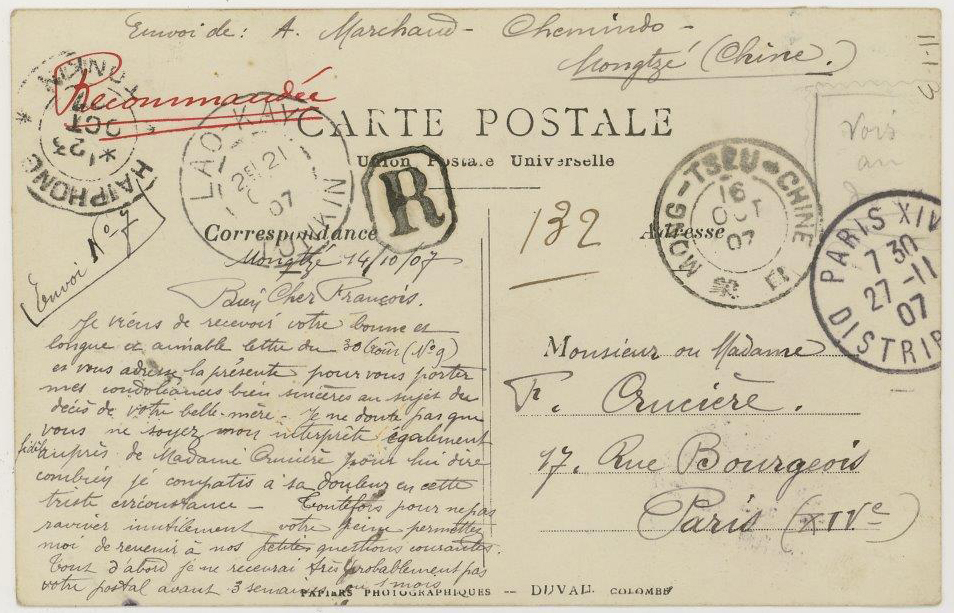 Envoi de : A. Marchand - Chemindo -
Mongtzé (Chine.)
Recommandée
11-1 3
CARTE POSTALE
Union Postale Universelle
HAIPHONG TONKIN
23 OCT 07
LAO-KAY TONKIN
21 07
R
132
MONG-TSEU CHINE
16 OCT 07
PARIS XIV
7 30
27-11
07
DISTRIB
Vois
au
Correspondance
Adresse
Envoi N° 7
Mongtze 14/10/07
Bien Cher François.
Je viens de recevoir votre bonne et
longue et aimable lettre du 30 Août (N° 9)
et vous adresse la présente pour vous porter
mes condoléances bien sincères au sujet du
décès de votre belle-mère - Je ne doute pas que
vous ne soyez mon interprète également
fidèle auprès de Madame Crucière pour lui dire
combien je compatis à sa douleur en cette
triste circonstance - Toutefois pour ne pas
raviver inutilement votre peine permettez
moi de revenir à nos petites questions courantes.
Tout d'abord je ne recevrai très probablement pas
votre postal avant 3 semaines ou 1 mois
Monsieur ou Madame
F. Crucière.
17. Rue Bourgeois
Paris (XIVe)
PAPIERS PHOTOGRAPHIQUES -- DUVAU. COLOMBE